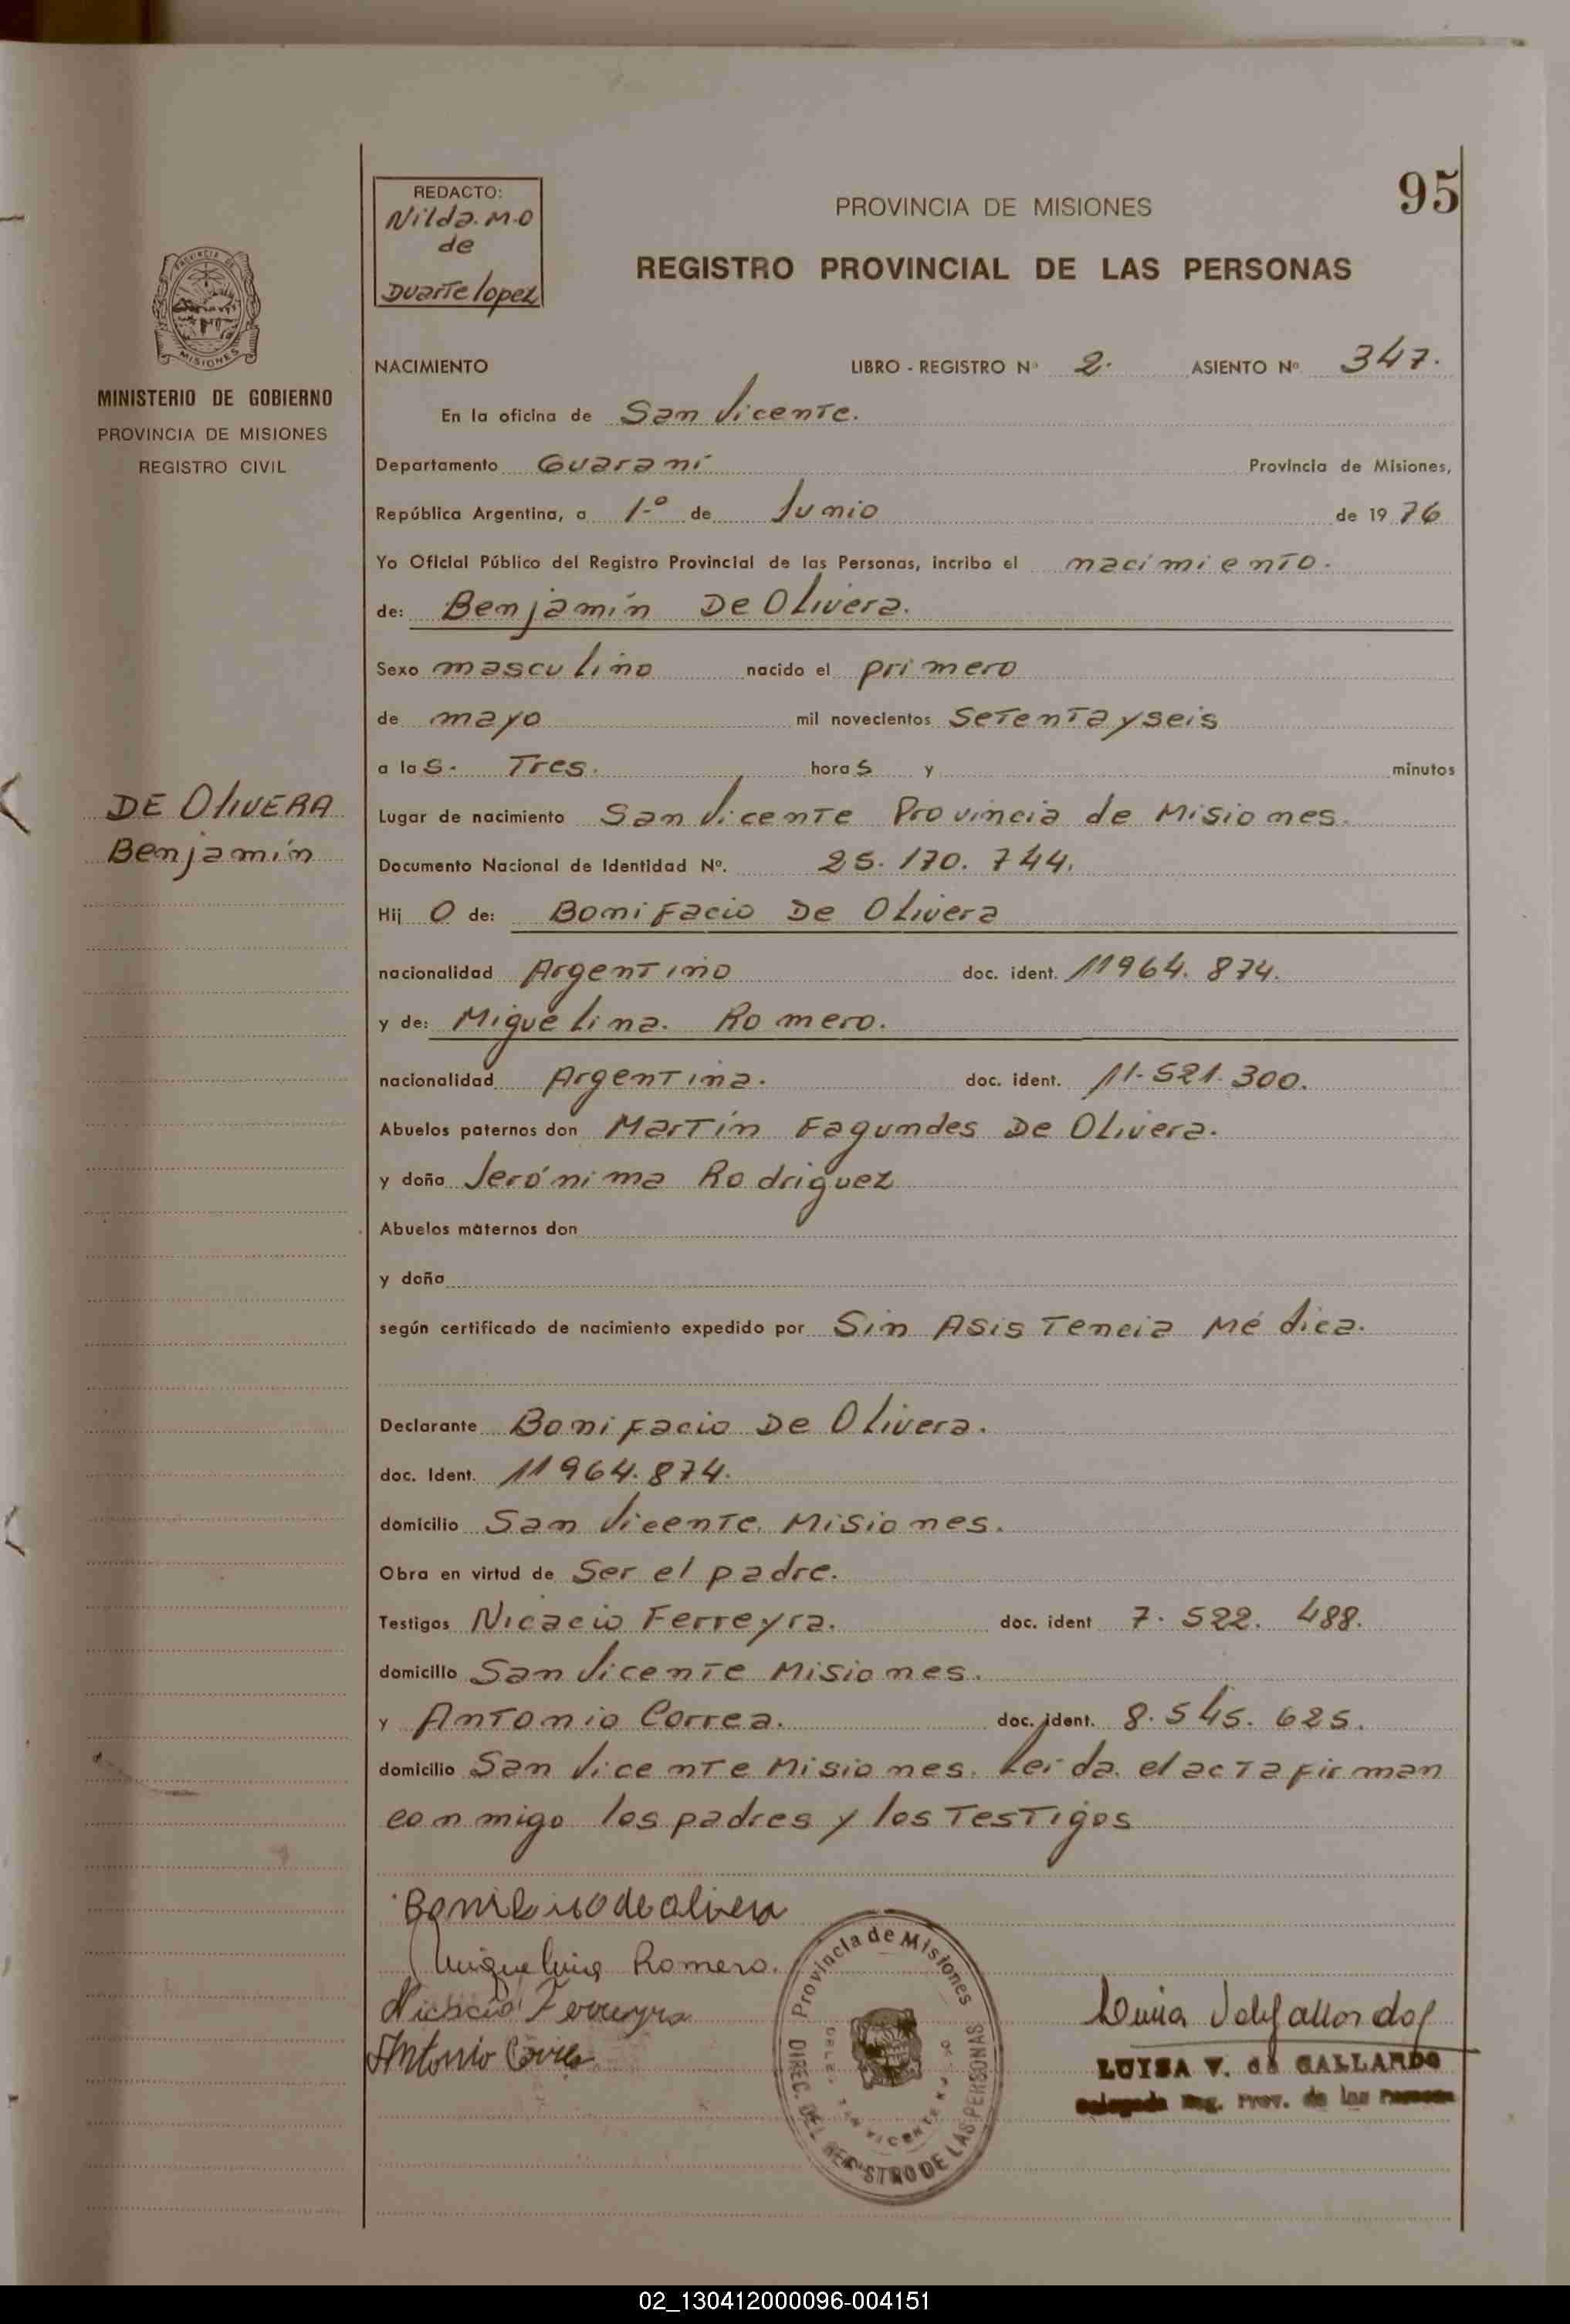 95
REDACTO:
Nilda. M.O
de
Duarte lopez
PROVINCIA DE MISIONES
REGISTRO PROVINCIAL DE LAS PERSONAS
PROVINCIA DE
MISIONES
MINISTERIO DE GOBIERNO
PROVINCIA DE MISIONES
REGISTRO CIVIL
DE OlIVERA
Benjamín
NACIMIENTO LIBRO - REGISTRO Nº 2. ASIENTO Nº 347.
En la oficina de San Vicente.
Departamento Guaraní Provincia de Misiones,
República Argentina, a 1-º de Junio de 19 76
Yo Oficial Público del Registro Provincial de las Personas, incribo el nacimiento.
de: Benjamín De Olivera.
Sexo masculino nacido el primero
de mayo mil novecientos Setenta y seis
a las. Tres. horas y minutos
Lugar de nacimiento San Vicente Provincia de Misiones.
Documento Nacional de Identidad Nº. 25.170.744.
Hij o de: Bonifacio De Olivera
nacionalidad Argentino doc. ident. 11964.874.
y de: Miguelina. Romero.
nacionalidad Argentina. doc. ident. 11-521.300.
Abuelos paternos don Martín Fagundes De Olivera.
y doña Jerónima Rodriguez
Abuelos maternos don
y doña
según certificado de nacimiento expedido por Sin Asistencia Médica.
Declarante Bonifacio De Olivera.
doc. Ident. 11964.874.
domicilio San Vicente. Misiones.
Obra en virtud de Ser el padre.
Testigos Nicacio Ferreyra. doc. ident 7.522.488.
domicilio San Vicente Misiones.
y Antonio Correa. doc. ident. 8.545.625.
domicilio San Vicente Misiones. Leída. el acta firman
conmigo los padres y los Testigos
de olivera
Miguelina Romero.
Nicacio Ferreyra
Antonio
Provincia de Misiones
DIREC. DEL REGISTRO DE LAS PERSONAS
SAN VICENTE
Luisa V de Gallardo
LUISA V. de GALLARDO
Delegada Reg. Prov. de las Personas
02_130412000096-004151